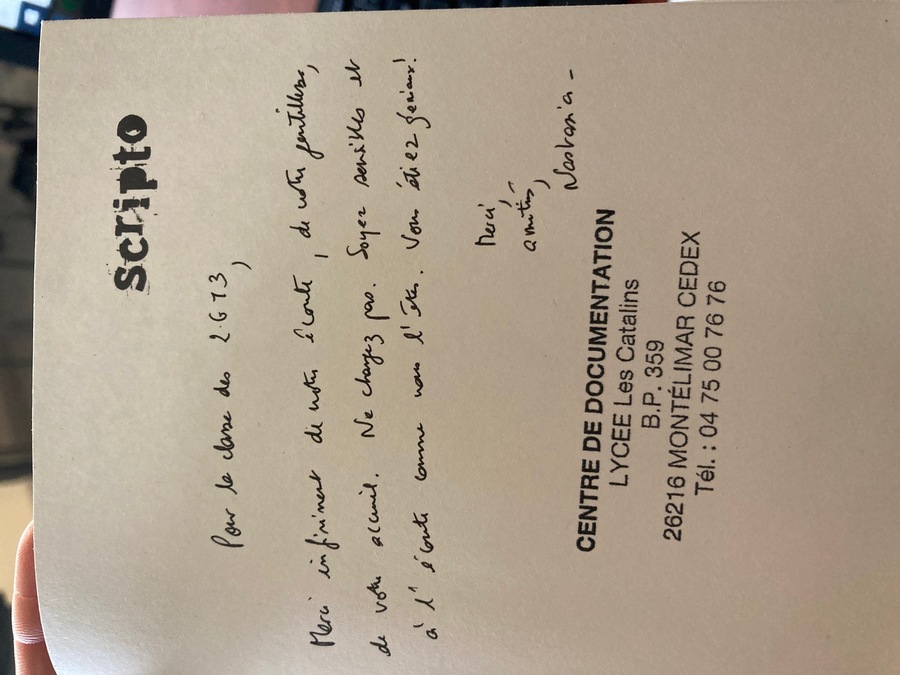 Scripto
Pour la classe des 2GT3,
Merci infiniment de votre écoute, de votre gentillesse,
de votre accueil. Ne changez pas. Soyez sensibles et
à l'écoute comme vous l'êtes. Vous étiez géniaux!
Merci,
amitiés,
Nastasia -
CENTRE DE DOCUMENTATION
LYCEE Les Catalins
B.P. 359
26216 MONTÉLIMAR CEDEX
Tél. : 04 75 00 76 76